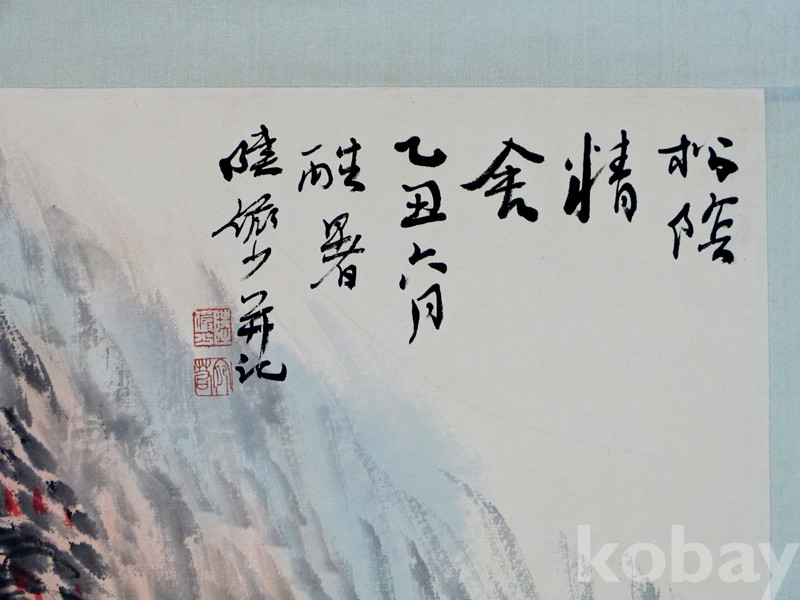 松陰
精
舍
乙丑六月
酷暑
陸儼少并記
kobay